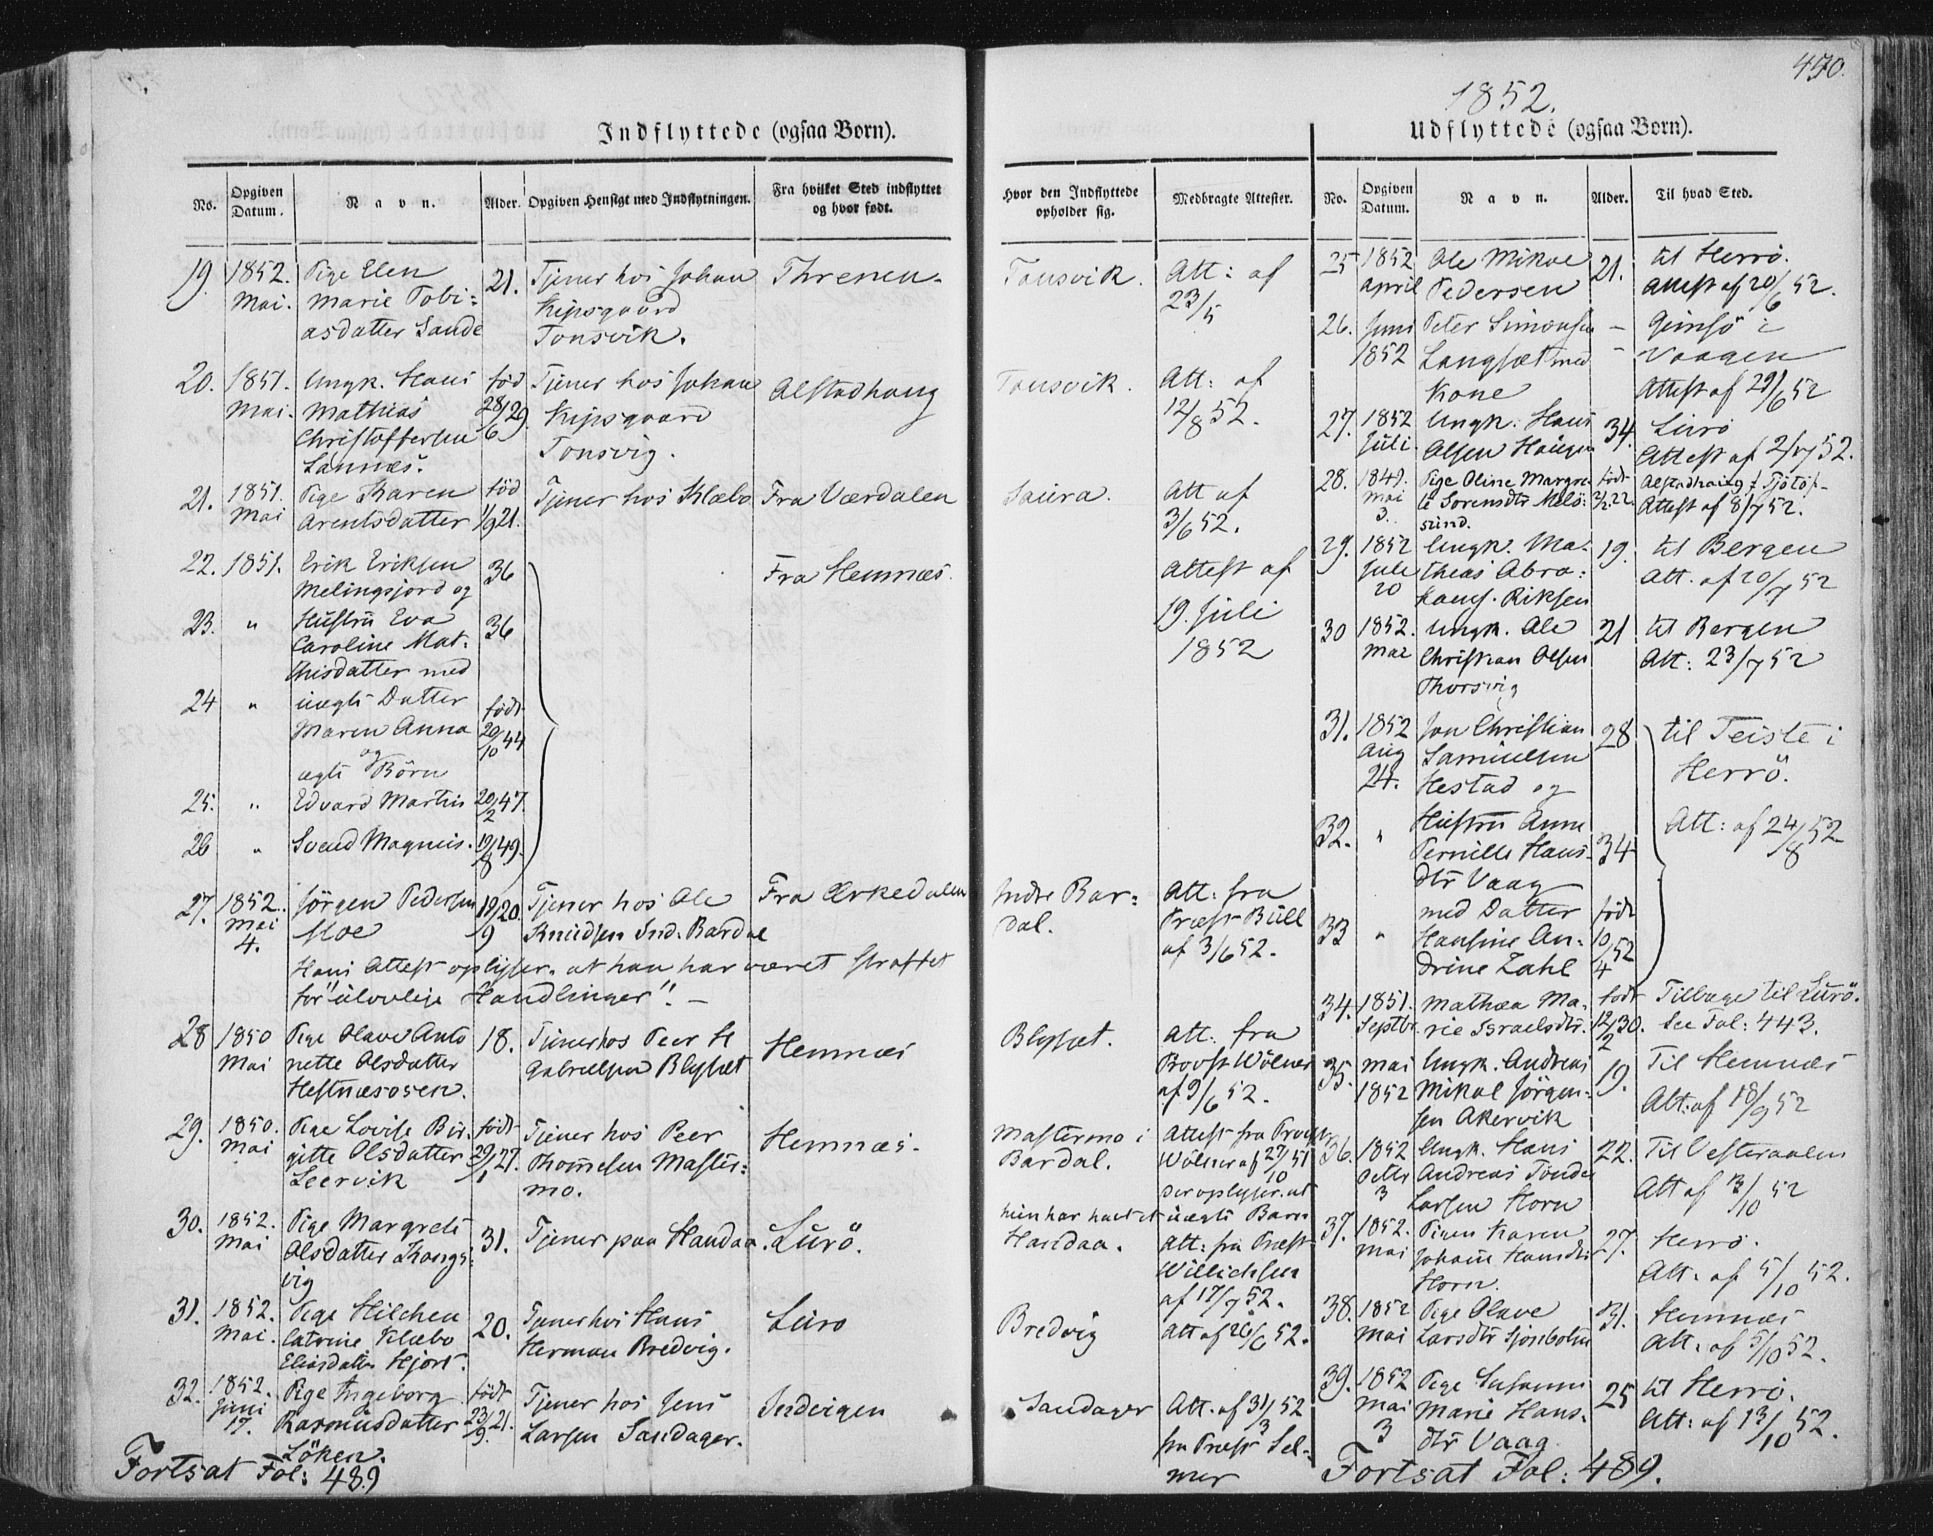 450.
1852.
Indflyttede (ogsaa Børn).
No. Opgiven Datum. Navn. Alder. Opgiven Hensigt med Indflytningen. Fra hvilket Sted indflyttet og hvor født. Hvor den Indflyttede opholder sig. Medbragte Attester.
19. 1852. Pige Elen 21. Tjener hos Johan Threnen. Tonsvik. Att: af
Mai. Marie Tobi- Kipsgaard 23/5
asdatter Sande Tonsvik.
20. 1851. Ungk. Hans fød Tjener hos Johan Alstadhaug Tonsvik. Att: af
Mai. Mathias 28/6 29. Kipsgaard 12/8 52.
Christoffersen Tonsvig.
21. 1851. Pige Karen fød Tjener hos Klæbo Fra Værdalen Saura. Att af
Mai Arentsdatter 1/9 21. 3/6 52.
22. 1851. Erik Eriksen 36 Fra Hemnæs. Attest af
Melingsjord og 19. Juli
23. " Hustru Eva 36 1852
Caroline Mat-
thisdatter med
24 " uægte Datter født
Maren Anna 29/10 44
og
ægte Børn
25. " Edvard Martin 20/2 47.
26 " Svend Magnus. 19/8 49.
27. 1852. Jörgen Pedersen 19/9 20. Tjener hos Ole Fra Ørkedalen Indre Bar- Att: fra
Mai Moe Knudsen Ind. Bardal dal. Præst Bull
4. af 3/6 52.
Hans Attest oplyser, at han har været straffet
for "ulovlige Handlinger". -
28 1850 Pige Olave Anto 18. Tjener hos Peer H Hemnæs Blysæt. Att: fra
Mai nette Olsdatter Gabrielsen Blysæt Provst Wölner
Hestnæsosen. af 9/6 52.
29. 1850. Pige Lovise Bir- født Tjener hos Peer Hemnæs. Mastermo i Attest fra Provst
Mai gitte Olsdatter 27. Thomesen Master- Bardal. Wölner af 27/10 51
Leervik mo. der oplyser, at
hun har havt et uægte Barn
30. 1852. Pige Margrete 31. Tjener paa Handaa. Lurö. Handaa. Att: fra Præst
Mai Olsdatter Kongs- Willichsen
vig af 17/7 52.
31. 1852. Pige Hilchen 20. Tjener hos Hans Luro Bredvig Att af 26/6 52.
Mai. Catrine Klæbo Herman Bredvig.
Eliasdatter Hjort.
32. 1852. Pige Ingeborg født Tjener hos Jens Indvigen Sandager Att. af 31/3 52
Juni Rasmusdatter 23/9 21. Larsen Sandager. fra Præst Sel-
17. Löken. mer
Fortsat Fol: 489
Udflyttede (ogsaa Børn).
No. Opgiven Datum. Navn. Alder. Til hvad Sted.
25 1852 Ole Mikae 21. til Herrö.
April Pedersen Attest af 20/6 52.
26. Juni Peter Simonsen - Gimsö i
1852 Langsæt med - Vaagen
Kone Attest af 29/6 52
27. 1852 Ungk. Hans 34. Lurö
Juli. Olsen Haugen Attest af 2/7 52.
28. 1849. Pige Oline Margre født Alstadhaug i Tjötö-
Mai te Sorensdtr Melö- 2/2 22. Attest af 8/7 52.
3. sund.
29. 1852 Ungk. Ma- 19. til Bergen
Juli theas Abra- Att. af 20/7 52
20 hams. Riksen
30 1852. Ungk. Ole 21 til Bergen
Mai Christian Olsen Att: 23/7 52
Thorsvig
31. 1852 Jon Christian 28 til Teiste i
Aug Samuelsen Herrö.
24. Hestad og
32. " Hustru Anne 34 Att: af 24/8 52
Pernille Hans-
dtr Vaag
33 " med Datter født
Hansine An- 10/4 52
drine Zahl
34. 1851. Mathea Ma- født Tilbage til Lurö.
Septbr. rie Israelsdtr. 12/2 30. See Fol: 443.
35. Mai Ungk. Andreas 19. Til Hemnæs
1852 Mikal Jörgen- Att: af 18/9 52
sen Akervik
36. 1852 Ungk. Hans 22. Til Vesteraalen
Octbr Andreas Tönder Att af 13/10 52
3 Larsen Horn
37. 1852. Pigen Karen 27. Herrö.
Mai Johane Hansdtr Att. af 5/10 52.
Horn
38. 1852 Pige Olave 31. Hemnæs
Mai Larsdtr Sjonbotn Att. af 5/10 52.
39. 1852 Pige Susanne 25 til Herrö.
Mai Marie Hans- Att: af 13/10 52.
3 dtr Vaag
Fortsat Fol: 489.